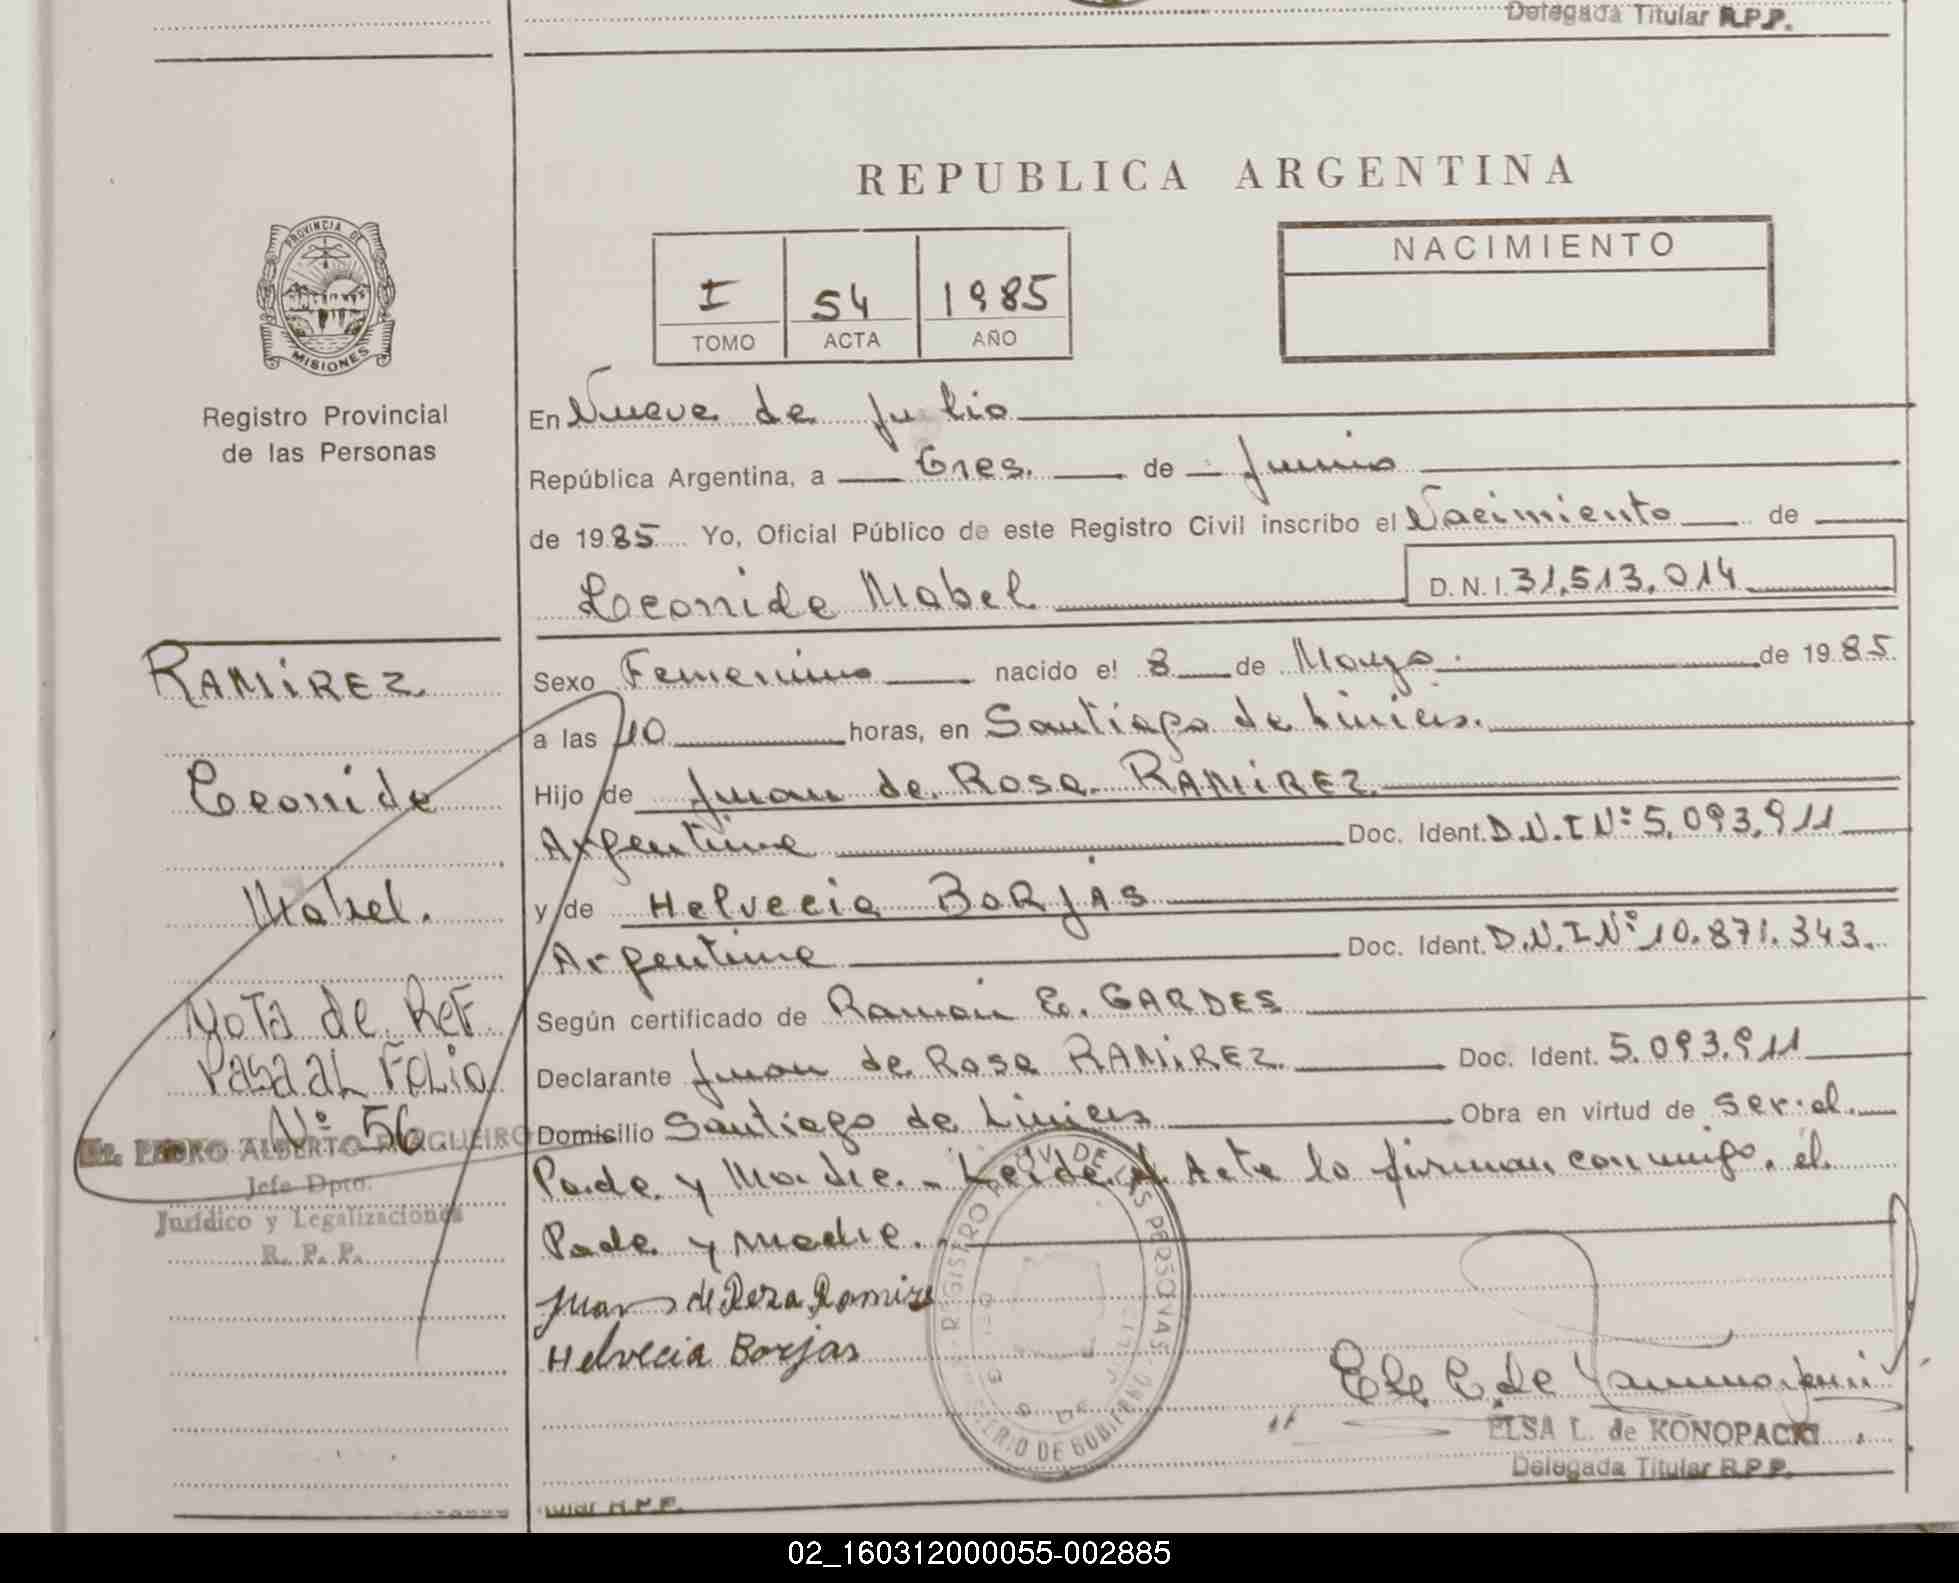 Delegada Titular R.P.P.
REPUBLICA ARGENTINA
PROVINCIA DE
MISIONES
Registro Provincial
de las Personas
I 54 1985
TOMO ACTA AÑO
NACIMIENTO
En Nueve de Julio
República Argentina, a Tres. de Junio
de 1985 Yo, Oficial Público de este Registro Civil inscribo el Nacimiento de
Leonide Mabel D.N.I. 31.513.014
RAMIREZ
Leonide
Mabel.
Nota de Ref
Pasa al Folio
Nº 56
Dr. PEDRO ALBERTO
Jefe Dpto.
Jurídico y Legalizaciones
R. P. P.
Sexo Femenino nacido el 8 de Mayo. de 1985
a las 10 horas, en Santiago de Liniers.
Hijo de Juan de Rosa RAMIREZ
Argentina Doc. Ident. D.N.I Nº 5.093.911
y de Helvecia BORJAS
Argentina Doc. Ident. D.N.I Nº 10.871.343.
Según certificado de Ramón E. GARDES
Declarante Juan de Rosa RAMIREZ Doc. Ident. 5.093.911
Domisilio Santiago de Liniers Obra en virtud de ser el
Pade y Madre. Leida el Acta lo firman conmigo, el
Pade y Madre.
Juan de Roza Ramirez
Helvecia Borjas
REGISTRO PROV. DE LAS PERSONAS
MINISTERIO DE GOBIERNO
9 DE JULIO
ELSA L. de KONOPACKI
Delegada Titular R.P.P.
Titular R.P.P.
02_160312000055-002885